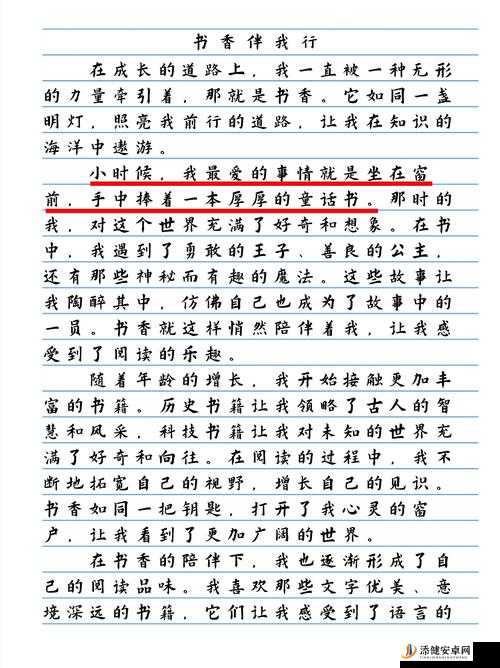 书香伴我行
在成长的道路上，我一直被一种无形
的力量牵引着，那就是书香。它如同一盏
明灯，照亮我前行的道路，让我在知识的
海洋中遨游。
小时候，我最爱的事情就是坐在窗
前，手中捧着一本厚厚的童话书。那时的
我，对这个世界充满了好奇和想象。在书
中，我遇到了勇敢的王子、善良的公主，
还有那些神秘而有趣的魔法。这些故事让
我陶醉其中，仿佛自己也成为了故事中的
一员。书香就这样悄然陪伴着我，让我感
受到了阅读的乐趣。
随着年龄的增长，我开始接触更加丰
富的书籍。历史书籍让我领略了古人的智
慧和风采，科技书籍让我对未知的世界充
满了好奇和向往。在阅读的过程中，我不
断地拓宽自己的视野，增长自己的见识。
书香如同一把钥匙，打开了我心灵的窗
户，让我看到了更加广阔的世界。
在书香的陪伴下，我也逐渐形成了自
己的阅读品味。我喜欢那些文字优美、意
境深远的书籍，它们让我感受到了语言的
添健安卓网